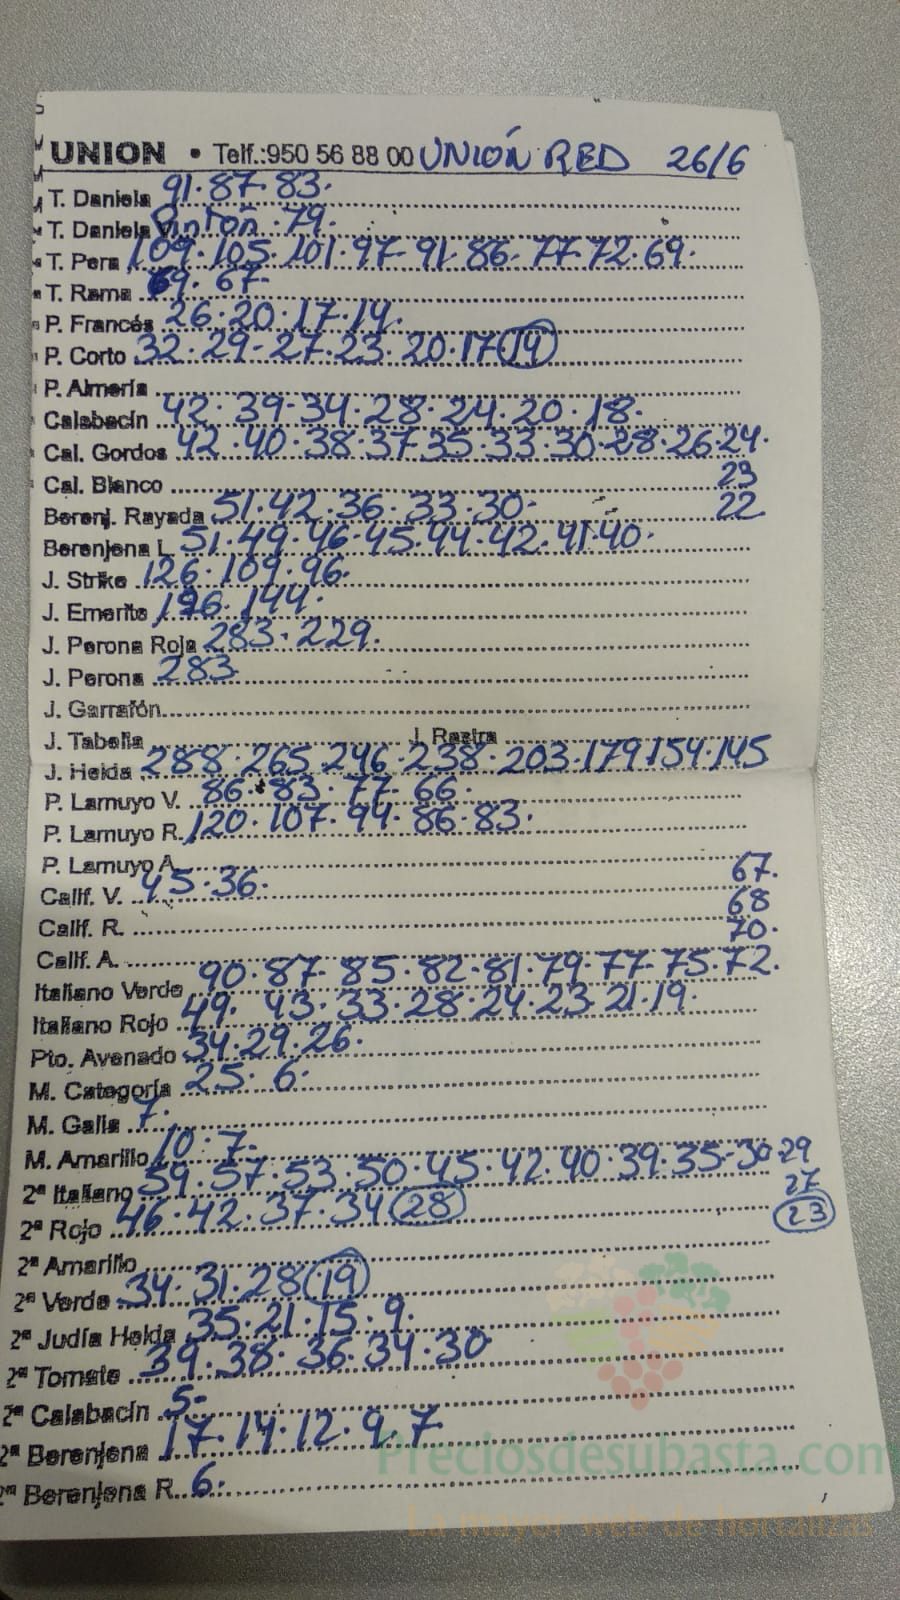 UNION • Telf.:950 56 88 00 UNIÓN RED 26/6
T. Daniela 91·87·83·
T. Daniela V. Pintón ·79·
T. Pera 109·105·101·97·91·86·77·72·69·
T. Rama 69·67
P. Francés 26·20·17·14·
P. Corto 32·29·27·23·20·17 (19)
P. Almería
Calabacín 42·39·34·28·24·20·18·
Cal. Gordos 42·40·38·37·35·33·30·28·26·24·
Cal. Blanco 23
Berenj. Rayada 51·42·36·33·30· 22
Berenjena L 51·49·46·45·44·42·41·40·
J. Strike 126·109·96·
J. Emerite 196·144·
J. Perona Roja 283·229·
J. Perona 283
J. Garrafón
J. Tabella J. Rastra
J. Helda 288·265·246·238·203·179·154·145
P. Lamuyo V. 86·83·77·66·
P. Lamuyo R. 120·107·94·86·83·
P. Lamuyo A. 67·
Calif. V. 45·36· 68
Calif. R. 70·
Calif. A.
Italiano Verde 90·87·85·82·81·79·77·75·72·
Italiano Rojo 49·43·33·28·24·23·21·19·
Pto. Avenado 34·29·26·
M. Categoría 25·6·
M. Galia 7·
M. Amarillo 10·7·
2ª Italiano 59·57·53·50·45·42·40·39·35·30·29
27
2ª Rojo 46·42·37·34 (28) (23)
2ª Amarillo
2ª Verde 34·31·28 (19)
2ª Judía Helda 35·21·15·9·
2ª Tomate 39·38·36·34·30
2ª Calabacín 5·
2ª Berenjena 17·14·12·9·7
2ª Berenjena R. 6·
Preciosdesubasta.com
La mayor web de hortalizas